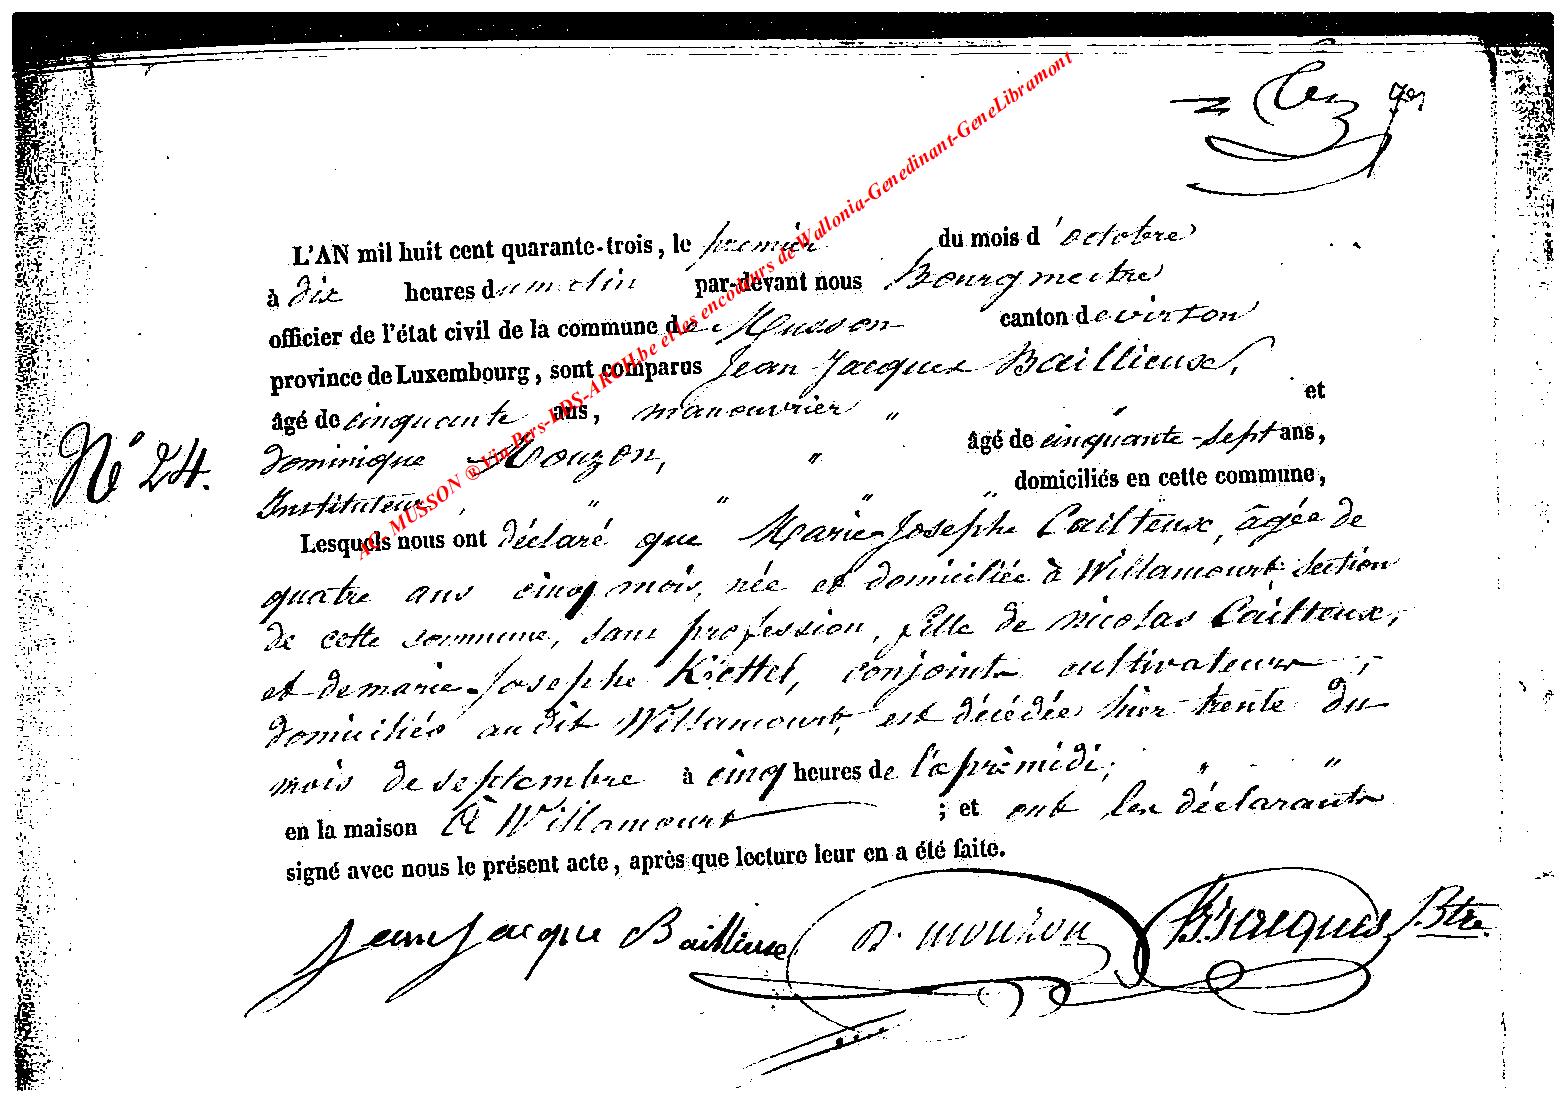 L'AN mil huit cent quarante-trois, le premier du mois d'octobre
à dix heures du matin par-devant nous Bourgmestre
officier de l'état civil de la commune de Musson canton de virton
province de Luxembourg, sont comparus Jean Jacques Baillieux,
âgé de cinquante ans, manouvrier " " et
dominique Mouzon, " âgé de cinquante-sept ans,
Instituteur, " " " " domiciliés en cette commune,
N° 24.
Lesquels nous ont déclaré que Marie-Josephe Cailteux, âgée de
quatre ans cinq mois, née et domiciliée à Willamourt, section
de cette commune, sans profession, fille de nicolas Cailteux,
et de marie-Josephe Kiettel, conjoints cultivateurs,
domiciliés audit Willamourt, est décédée hier trente du
mois de septembre à cinq heures de l'aprèmidi; " "
en la maison à Willamourt ; et ont les déclarants
signé avec nous le présent acte, après que lecture leur en a été faite.
Jean Jacque Baillieux D. mouzon Jacques Btre.
AC MUSSON ® Via Pers-LDS-ARCH.be et les encodeurs de Wallonia-Genedinant-GeneLibramont